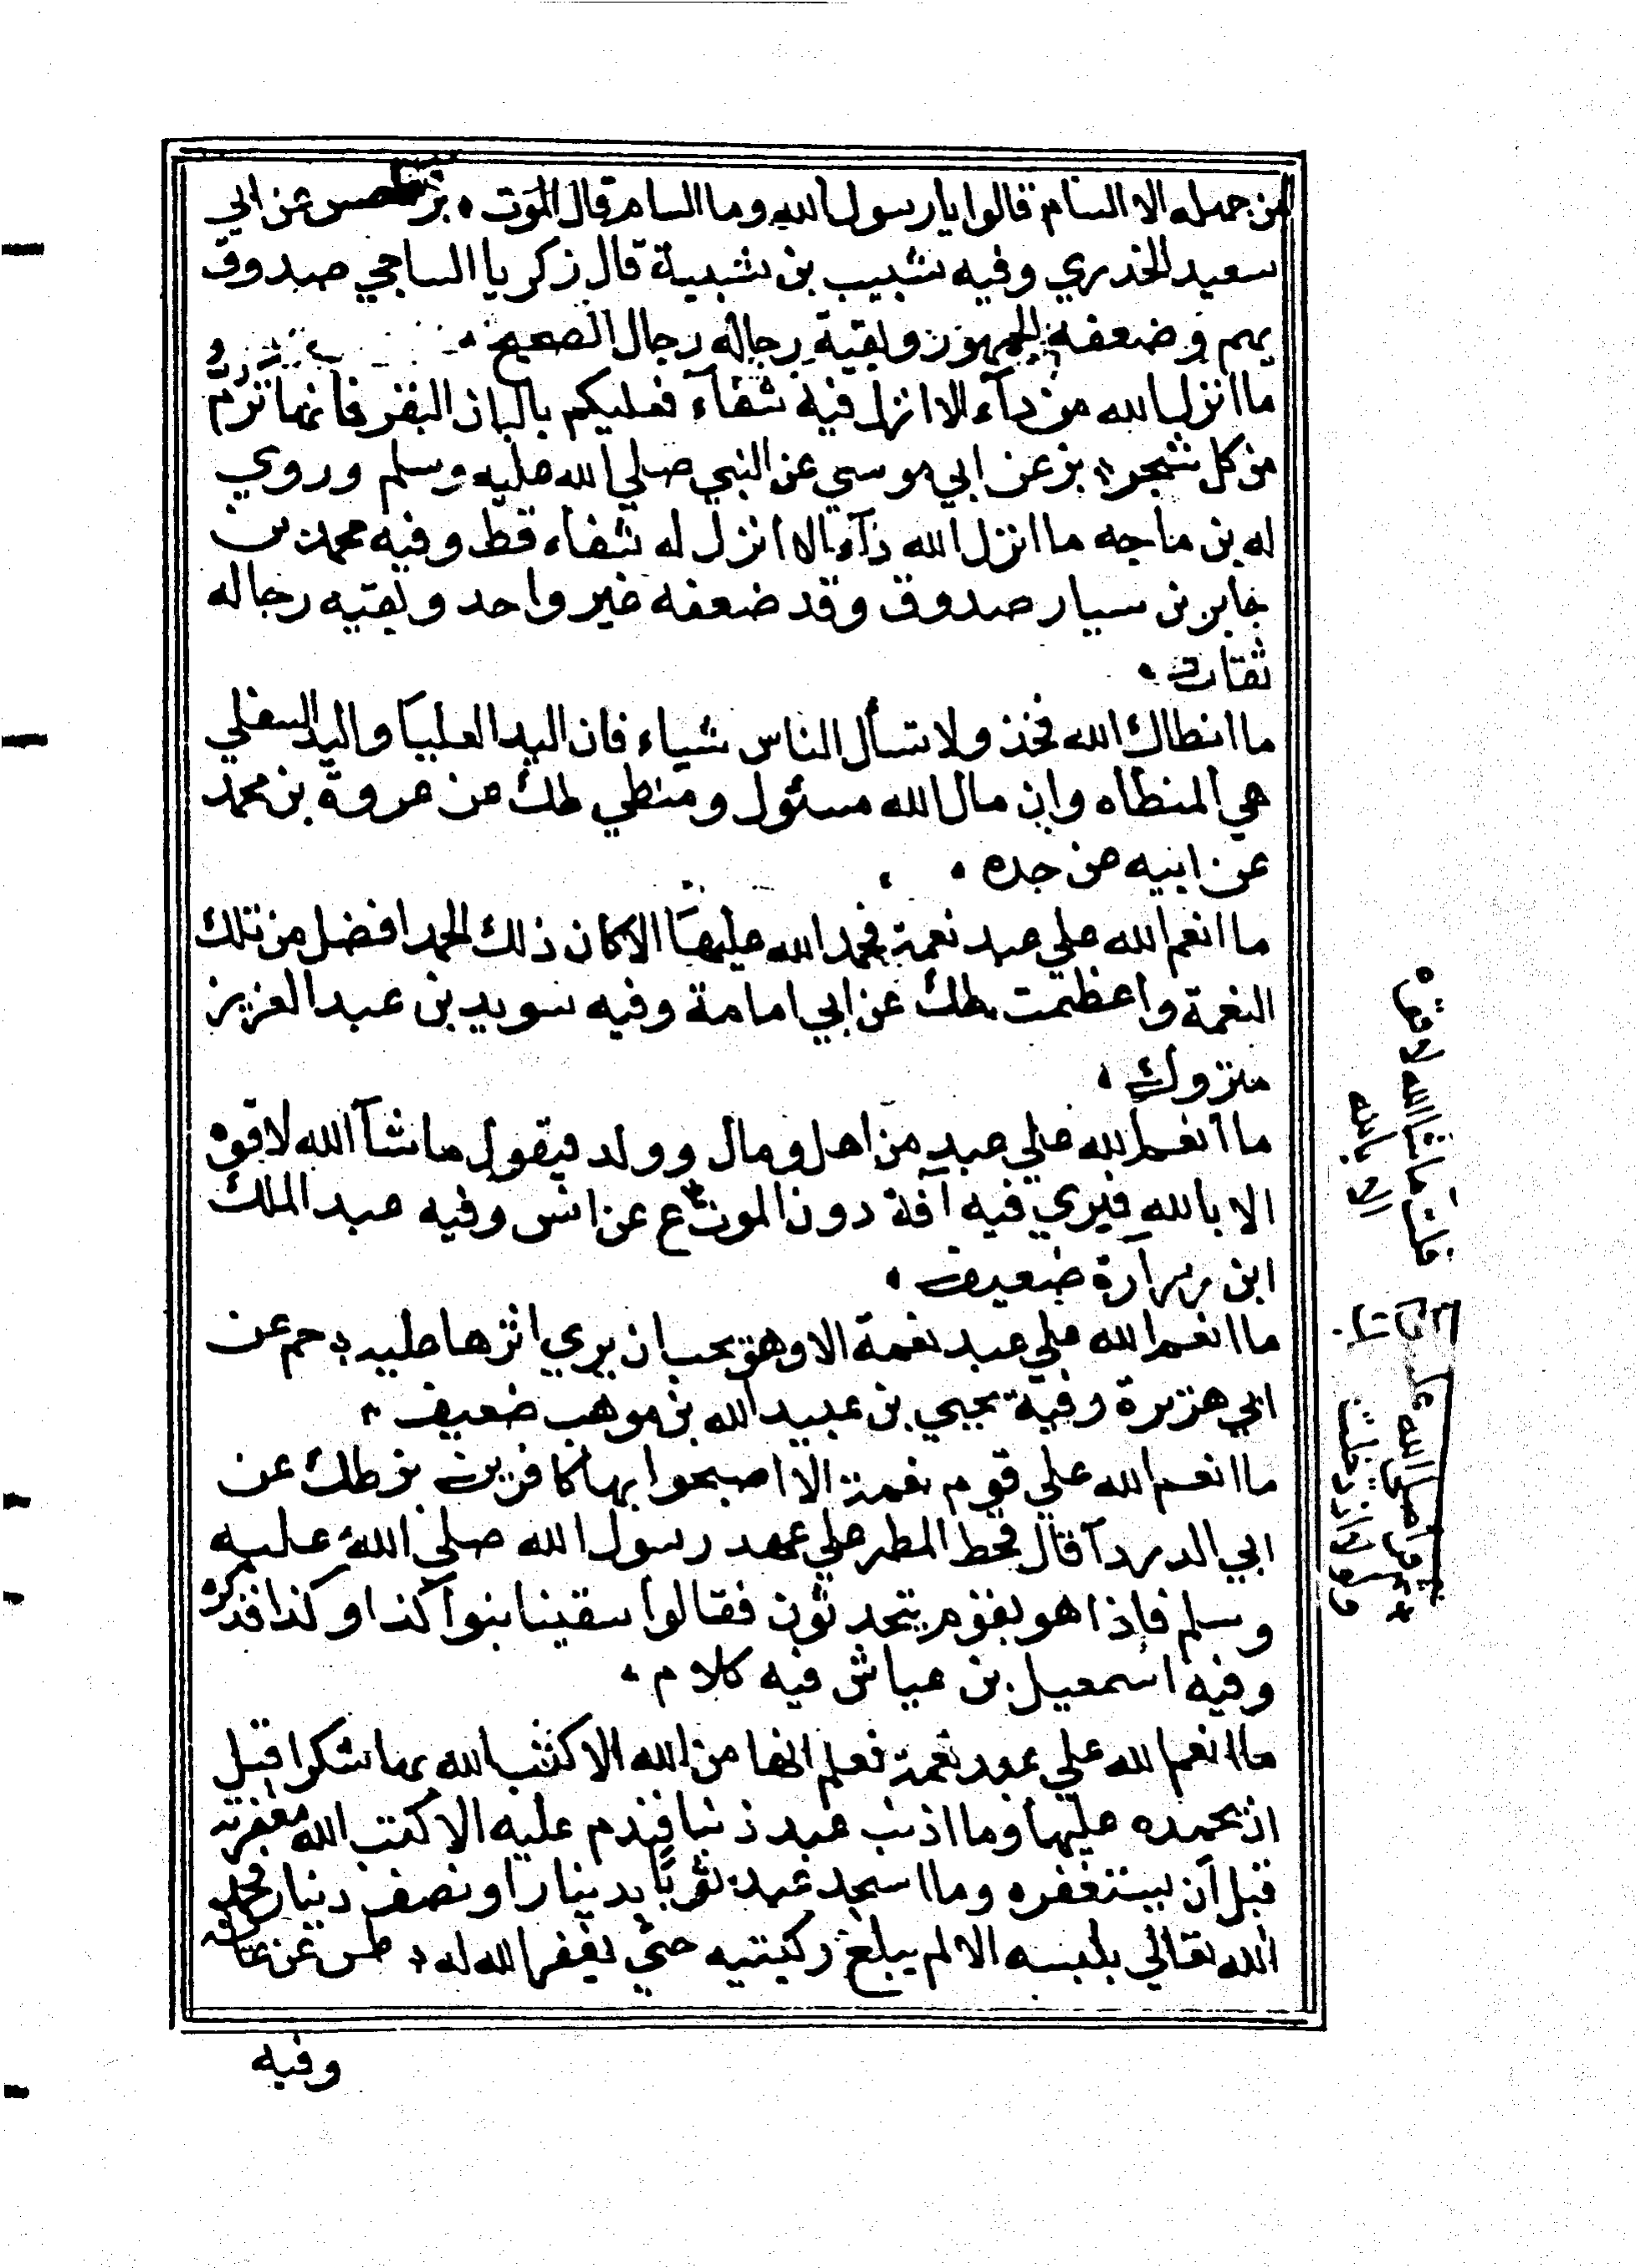 من جهله الا السام قالوا يا رسول الله وما السام قال الموت ، بز طص عن ابي
سعيد الخدري وفيه شبيب بن شيبة قال زكريا الساجي صدوق
يهم وضعفه الجمهور وبقية رجاله رجال الصحيح .
ما انزل الله من دآء الا انزل فيه شفآء فعليكم بالبان البقر فانها ترم
من كل شجر ، بز عن ابي موسي عن النبي صلي الله عليه وسلم وروي
له بن ماجه ما انزل الله دآء الا انزل له شفاء قط وفيه محمد بن
جابر بن سيار صدوق وقد ضعفه غير واحد وبقيه رجاله
ثقات .
ما انطاك الله فخذ ولا تسأل الناس شياء فان اليد العليا واليد السفلي
هي المنطاه وان مال الله مسئول ومنطي طك عن عروة بن محمد
عن ابيه عن جده .
ما انعم الله علي عبد نعمة فحمد الله عليها الا كان ذلك الحمد افضل من تلك
النعمة واعظمت طك عن ابي امامة وفيه سويد بن عبد العزيز
متروك .
ما انعم الله علي عبد من اهل ومال وولد فيقول ما شآ الله لا قوه
الا بالله فيري فيه آفة دون الموت ع عن انس وفيه عبد الملك
ابن زرارة ضعيف .
ما انعم الله علي عبد نعمة الا وهو يحب ان يري اثرها عليه ، حم عن
ابي هريرة وفيه يحيي بن عبيد الله بن موهب ضعيف .
ما انعم الله علي قوم نعمة الا اصبحوا بها كافرين بز طك عن
ابي الدردآ قال قحط المطر علي عهد رسول الله صلي الله عليه
وسلم فاذا هو بقوم يتحدثون فقالوا سقينا بنوا كذا وكذا فذكره
وفيه اسمعيل بن عياش فيه كلام .
ما انعم الله علي عبد نعمة فعلم انها من الله الا كتب الله بها شكرا قبل
ان يحمده عليها وما اذنب عبد ذنبا فندم عليه الا كتب الله مغفرته
قبل ان يستغفره وما استجد عبد ثوبا بدينار او نصف دينار فحمد
الله تعالي يلبسه الا لم يبلغ ركبتيه حتي يغفر الله له ، طس عن عائشه
وفيه
قلت ما شا الله لا قوة
الا بالله
ولولا اذ دخلت